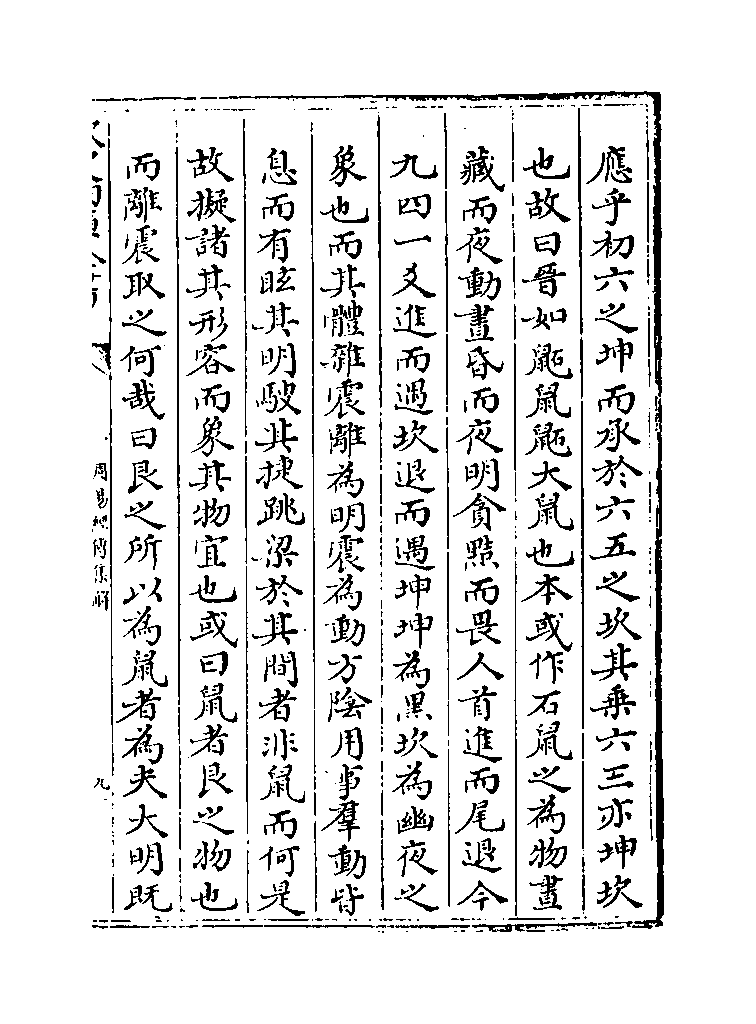 應乎初六之坤而承於六五之坎其乗六三亦坤坎
也故曰晉如鼫鼠鼫大鼠也本或作石鼠之為物晝
藏而夜動晝昏而夜明貪黠而畏人首進而尾退今
九四一爻進而遇坎退而遇坤坤為黒坎為幽夜之
象也而其體雜震離為明震為動方陰用事羣動皆
息而有眩其明駿其捷跳梁於其間者非鼠而何是
故擬諸其形容而象其物宜也或曰鼠者艮之物也
而離震取之何哉曰艮之所以為鼠者為夫大明既
周易經傳集解
九